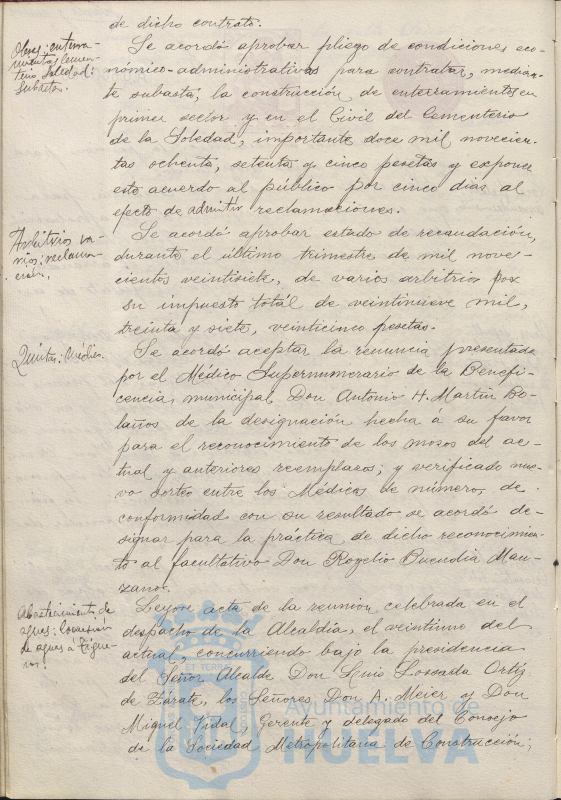 de dicho contrato.
Obras: enterra-
mientos Cemen-
terio Soledad:
subasta.
Se acordó aprobar pliego de condiciones eco-
nómico-administrativas para contratar, median-
te subasta, la construcción de enterramientos en
primer sector y en el Civil del Cementerio
de la Soledad, importante doce mil novecien-
tas ochenta, setenta y cinco pesetas y exponer
este acuerdo al público por cinco dias al
efecto de admitir reclamaciones.
Arbitrios va-
rios:
Se acordó aprobar estado de recaudación,
durante el último trimestre de mil nove-
cientos veintisiete, de varios arbitrios por
su impuesto total de veintinueve mil,
treinta y siete, veinticinco pesetas.
Quintas: Médico.
Se acordó aceptar la renuncia presentada
por el Médico Supernumerario de la Benefi-
cencia municipal Don Antonio H. Martín Bo-
laños de la designación hecha á su favor
para el reconocimiento de los mosos del ac-
tual y anteriores reemplazos; y verificado nue-
vo sorteo entre los Médicos de número, de
conformidad con su resultado se acordó de-
signar para la práctica de dicho reconocimien-
to al facultativo Don Rogelio Buendia Man-
zano.
Abastecimiento de
aguas:
de aguas á Figue-
roa:
Leyose acta de la reunión celebrada en el
despacho de la Alcaldía, el veintiuno del
actual, concurriendo bajo la presidencia
del Señor Alcalde Don Luis Lossada Ortíz
de Zárate, los Señores Don A. Meier y Don
Miguel Vidal, Gerente y delegado del Consejo
de la Sociedad Metropolitana de Construcción;
Ayuntamiento de
HUELVA